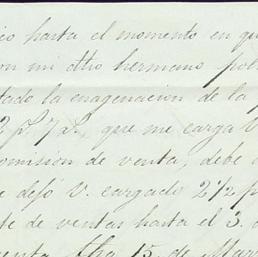 cio hasta el momento en qu
on mi otro hermano pol
tado la enagenacion de la
que me carga V
omision de venta, debe
e dejó V. cargado 2½ p
te de ventas hasta el 3. d
enta fha 15. de Mar